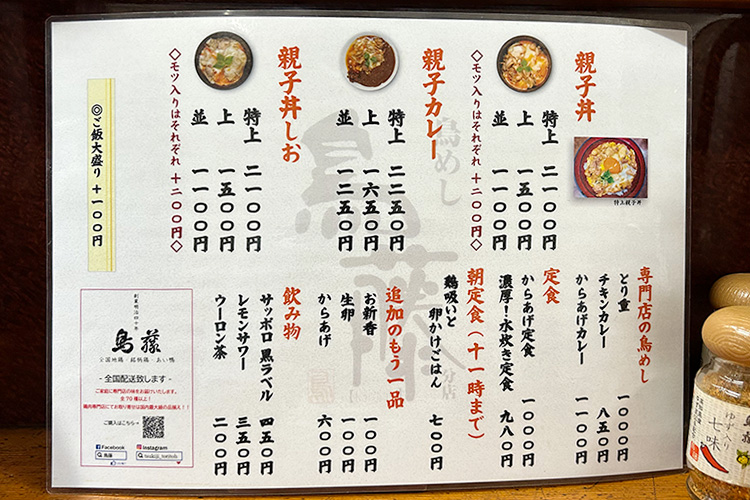 親子丼
特上 二一〇〇円
上 一五〇〇円
並 一一〇〇円
◇モツ入りはそれぞれ+二〇〇円◇
特上親子丼
親子カレー
特上 二二五〇円
上 一六五〇円
並 一二五〇円
親子丼しお
特上 二一〇〇円
上 一五〇〇円
並 一一〇〇円
◇モツ入りはそれぞれ+二〇〇円◇
◎ご飯大盛り+一〇〇円
専門店の鳥めし
とり重 一〇〇〇円
チキンカレー 八五〇円
からあげカレー 一〇〇〇円
定食
からあげ定食 一〇〇〇円
濃厚!水炊き定食 九八〇円
朝定食(十一時まで)
鶏吸いと
卵かけごはん 七〇〇円
追加のもう一品
お新香 一〇〇円
生卵 一〇〇円
からあげ 六〇〇円
飲み物
サッポロ黒ラベル 四五〇円
レモンサワー 三五〇円
ウーロン茶 二〇〇円
鳥めし
鳥藤
分店
創業明治四十年
鳥藤
全国地鶏・銘柄鶏・あい鴨
- 全国配送致します -
ご家庭に専門店の味をお届けいたします。
全70種以上!
鶏肉専門店にてお取り寄せは国内最大級の品揃え!!
ご購入はこちら⇒
Facebook
鳥藤
Instagram
tsukiji_toritoh
鳥藤
ゆず
七味